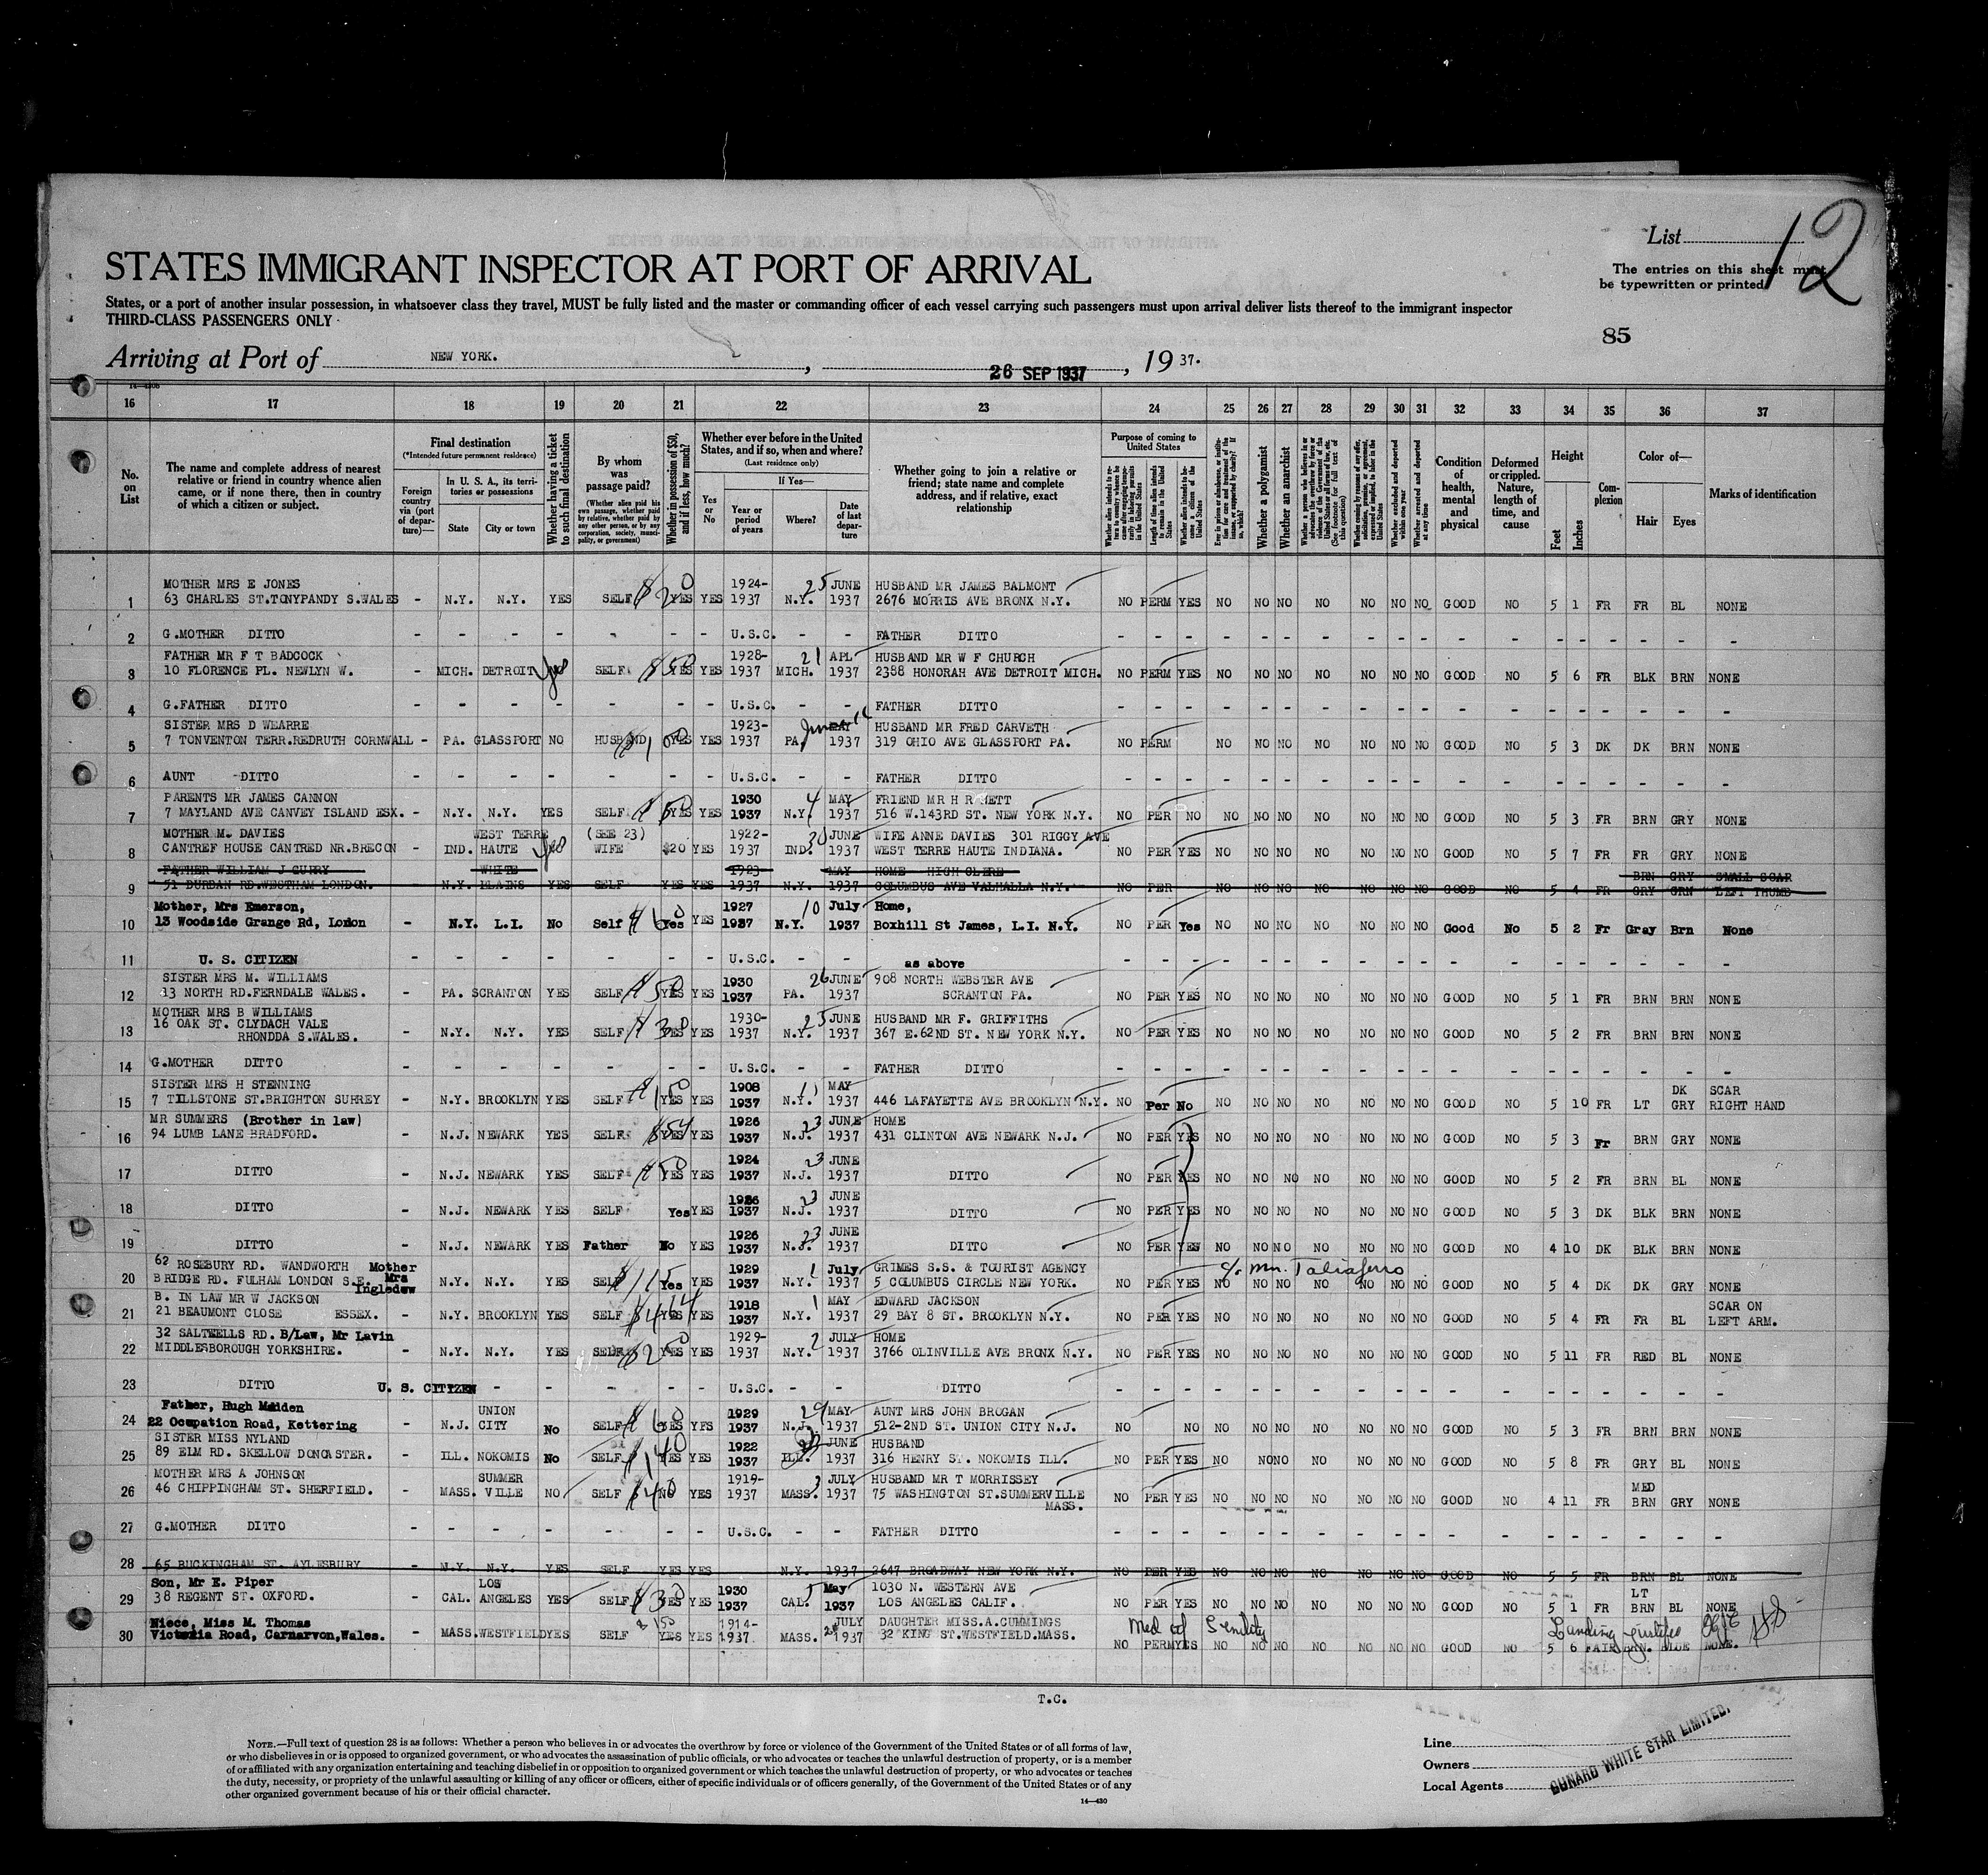 List 12
STATES IMMIGRANT INSPECTOR AT PORT OF ARRIVAL
The entries on this sheet must
be typewritten or printed
States, or a port of another insular possession, in whatsoever class they travel, MUST be fully listed and the master or commanding officer of each vessel carrying such passengers must upon arrival deliver lists thereof to the immigrant inspector
THIRD-CLASS PASSENGERS ONLY
85
Arriving at Port of NEW YORK. , 26 SEP 1937 , 19 37.
16 17 18 19 20 21 22 23 24 25 26 27 28 29 30 31 32 33 34 35 36 37
No. on List
The name and complete address of nearest relative or friend in country whence alien came, or if none there, then in country of which a citizen or subject.
Final destination
(*Intended future permanent residence)
Foreign country via (port of departure)—
In U. S. A., its territories or possessions
State City or town
Whether having a ticket to such final destination
By whom was passage paid?
(Whether alien paid his own passage, whether paid by relative, whether paid by any other person, or by any corporation, society, municipality, or government)
Whether in possession of $50, and if less, how much?
Whether ever before in the United States, and if so, when and where?
(Last residence only)
Yes or No
If Yes—
Year or period of years Where? Date of last departure
Whether going to join a relative or friend; state name and complete address, and if relative, exact relationship
Purpose of coming to United States
Whether a polygamist
Whether an anarchist
Condition of health, mental and physical
Deformed or crippled. Nature, length of time, and cause
Height
Feet Inches
Complexion
Color of—
Hair Eyes
Marks of identification
MOTHER MRS E JONES 1924- 25 JUNE HUSBAND MR JAMES BALMONT
1 63 CHARLES ST.TONYPANDY S.WALES - N.Y. N.Y. YES SELF $20 YES YES 1937 N.Y. 1937 2676 MORRIS AVE BRONX N.Y. NO PERM YES NO NO NO NO NO NO NO GOOD NO 5 1 FR FR BL NONE
2 G.MOTHER DITTO - - - - - - - U.S.C. - - FATHER DITTO - - - - - - - - - - - - - - - - - -
FATHER MR F T BADCOCK 1928- 21 APL HUSBAND MR W F CHURCH
3 10 FLORENCE PL. NEWLYN W. - MICH. DETROIT yes SELF $50 YES YES 1937 MICH. 1937 2388 HONORAH AVE DETROIT MICH. NO PERM YES NO NO NO NO NO NO NO GOOD NO 5 6 FR BLK BRN NONE
4 G.FATHER DITTO - - - - - - - U.S.C. - - FATHER DITTO - - - - - - - - - - - - - - - - - -
SISTER MRS D WEARRE 1923- June 16 MAY HUSBAND MR FRED CARVETH
5 7 TONVENTON TERR.REDRUTH CORNWALL - PA. GLASSPORT NO HUSBAND YES YES 1937 PA. 1937 319 OHIO AVE GLASSPORT PA. NO PERM NO NO NO NO NO NO NO GOOD NO 5 3 DK DK BRN NONE
6 AUNT DITTO - - - - - - - U.S.C. - - FATHER DITTO - - - - - - - - - - - - - - - - - -
PARENTS MR JAMES CANNON 1930 4 MAY FRIEND MR H R HETT
7 7 MAYLAND AVE CANVEY ISLAND ESX. - N.Y. N.Y. YES SELF $50 YES YES 1937 N.Y. 1937 516 W.143RD ST. NEW YORK N.Y. NO PER NO NO NO NO NO NO NO NO GOOD NO 5 3 FR BRN GRY NONE
MOTHER M. DAVIES WEST TERRE (SEE 23) 1922- 30 JUNE WIFE ANNE DAVIES 301 RIGGY AVE
8 CANTREF HOUSE CANTRED NR.BRECON - IND. HAUTE yes WIFE $20 YES 1937 IND. 1937 WEST TERRE HAUTE INDIANA. NO PER YES NO NO NO NO NO NO NO GOOD NO 5 7 FR FR GRY NONE
FATHER WILLIAM J CURRY WHITE 1923- MAY HOME HIGH CLERE BRN GRY SMALL SCAR
9 51 DURBAN RD.WESTHAM LONDON. N.Y. PLAINS YES SELF YES YES 1937 N.Y. 1937 COLUMBUS AVE VALHALLA N.Y. NO PER NO NO NO NO NO NO NO GOOD NO 5 4 FR GRY GRN LEFT THUMB
Mother, Mrs Emerson, 1927 10 July Home,
10 13 Woodside Grange Rd, London - N.Y. L.I. No Self $60 Yes YES 1937 N.Y. 1937 Boxhill St James, L.I. N.Y. NO PER Yes NO NO NO NO NO NO NO Good No 5 2 Fr Gray Brn None
11 U. S. CITIZEN - - - - - - - U.S.C. - - as above - - - - - - - - - - - - - - - - - -
SISTER MRS M. WILLIAMS 1930 26 JUNE 908 NORTH WEBSTER AVE
12 33 NORTH RD.FERNDALE WALES. - PA. SCRANTON YES SELF $50 YES YES 1937 PA. 1937 SCRANTON PA. NO PER YES NO NO NO NO NO NO NO GOOD NO 5 1 FR BRN BRN NONE
MOTHER MRS B WILLIAMS
16 OAK ST. CLYDACH VALE 1930- 25 JUNE HUSBAND MR F. GRIFFITHS
13 RHONDDA S.WALES. - N.Y. N.Y. YES SELF $30 YES YES 1937 N.Y. 1937 367 E.62ND ST. NEW YORK N.Y. NO PER YES NO NO NO NO NO NO NO GOOD NO 5 2 FR BRN BRN NONE
14 G.MOTHER DITTO - - - - - - - U.S.C. - - FATHER DITTO - - - - - - - - - - - - - - - - - -
SISTER MRS H STENNING 1908 11 MAY DK SCAR
15 7 TILLSTONE ST.BRIGHTON SURREY - N.Y. BROOKLYN YES SELF $150 YES YES 1937 N.Y. 1937 446 LAFAYETTE AVE BROOKLYN N.Y. NO Per No NO NO NO NO NO NO NO GOOD NO 5 10 FR LT GRY RIGHT HAND
MR SUMMERS (Brother in law) 1926 23 JUNE HOME
16 94 LUMB LANE BRADFORD. - N.J. NEWARK YES SELF $54 YES YES 1937 N.J. 1937 431 CLINTON AVE NEWARK N.J. NO PER YES NO NO NO NO NO NO NO GOOD NO 5 3 Fr BRN GRY NONE
1924 23 JUNE
17 DITTO - N.J. NEWARK YES SELF $50 YES YES 1937 N.J. 1937 DITTO NO PER YES NO NO NO NO NO NO NO GOOD NO 5 2 FR BRN BL NONE
1926 23 JUNE
18 DITTO - N.J. NEWARK YES SELF Yes YES 1937 N.J. 1937 DITTO NO PER YES NO NO NO NO NO NO NO GOOD NO 5 3 DK BLK BRN NONE
1926 23 JUNE
19 DITTO - N.J. NEWARK YES Father No YES 1937 N.J. 1937 DITTO NO PER YES NO NO NO NO NO NO NO GOOD NO 4 10 DK BLK BRN NONE
62 ROSEBURY RD. WANDWORTH Mother 1929 1 July GRIMES S.S. & TOURIST AGENCY c/o Mr. Taliaferro
20 BRIDGE RD. FULHAM LONDON S.E. Mrs Ingledew N.Y. N.Y. YES SELF $115 Yes YES 1937 N.Y. 1937 5 COLUMBUS CIRCLE NEW YORK. NO PER YES NO NO NO NO NO NO NO GOOD NO 5 4 DK DK GRY NONE
B. IN LAW MR W JACKSON 1918 1 MAY EDWARD JACKSON SCAR ON
21 21 BEAUMONT CLOSE ESSEX. - N.Y. BROOKLYN YES SELF YES YES 1937 N.Y. 1937 29 BAY 8 ST. BROOKLYN N.Y. NO PER YES NO NO NO NO NO NO NO GOOD NO 5 4 FR FR BL LEFT ARM.
32 SALTWELLS RD. B/Law, Mr Lavin 1929- 2 JULY HOME
22 MIDDLESBOROUGH YORKSHIRE. - N.Y. N.Y. YES SELF YES YES 1937 N.Y. 1937 3766 OLINVILLE AVE BRONX N.Y. NO PER YES NO NO NO NO NO NO NO GOOD NO 5 11 FR RED BL NONE
23 DITTO U. S. CITIZEN - - - - - U.S.C. - - DITTO - - - - - - - - - - - - - - - - - -
Father, Hugh Maiden UNION 1929 29 MAY AUNT MRS JOHN BROGAN
24 22 Occupation Road, Kettering - N.J. CITY No SELF $60 YES YES 1937 N.J. 1937 512-2ND ST. UNION CITY N.J. NO NO NO NO NO NO NO NO NO GOOD NO 5 3 FR BRN BRN NONE
SISTER MISS NYLAND 1922 JUNE HUSBAND
25 89 ELM RD. SKELLOW DONCASTER. - ILL. NOKOMIS No SELF $140 YES YES 1937 ILL. 1937 316 HENRY ST. NOKOMIS ILL. NO PER YES NO NO NO NO NO NO NO GOOD NO 5 8 FR GRY BL NONE
MOTHER MRS A JOHNSON SUMMER 1919- 3 JULY HUSBAND MR T MORRISSEY MED
26 46 CHIPPINGHAM ST. SHERFIELD. - MASS. VILLE NO SELF $40 NO YES 1937 MASS. 1937 75 WASHINGTON ST.SUMMERVILLE MASS. NO PER YES NO NO NO NO NO NO NO GOOD NO 4 11 FR BRN GRY NONE
27 G.MOTHER DITTO - - - - - - - U.S.C. - - FATHER DITTO - - - - - - - - - - - - - - - - - -
28 65 BUCKINGHAM ST. AYLESBURY - N.Y. N.Y. YES SELF YES YES N.Y. 1937 2647 BROADWAY NEW YORK N.Y. NO PER YES NO NO NO NO NO NO NO GOOD NO 5 5 FR BRN BL NONE
Son, Mr E. Piper LOS 1930 5 May 1030 N. WESTERN AVE LT
29 38 REGENT ST. OXFORD. - CAL. ANGELES YES SELF $30 YES YES 1937 CAL. 1937 LOS ANGELES CALIF. NO PER YES NO NO NO NO NO NO NO GOOD NO 5 1 FR BRN BL NONE
Niece, Miss M. Thomas $150 1914- JULY DAUGHTER MISS.A.CUMMINGS Med cf Senility Landing justified
30 Victoria Road, Carnarvon,Wales. - MASS. WESTFIELD YES SELF YES YES 1937. MASS. 1937 32 KING ST.WESTFIELD.MASS. NO PERM YES NO NO NO NO NO NO NO GOOD NO 5 6 FAIR BRN. BLUE NONE.
T.C.
NOTE.—Full text of question 28 is as follows: Whether a person who believes in or advocates the overthrow by force or violence of the Government of the United States or of all forms of law,
or who disbelieves in or is opposed to organized government, or who advocates the assassination of public officials, or who advocates or teaches the unlawful destruction of property, or is a member
of or affiliated with any organization entertaining and teaching disbelief in or opposition to organized government or which teaches the unlawful destruction of property, or who advocates or teaches
the duty, necessity, or propriety of the unlawful assaulting or killing of any officer or officers, either of specific individuals or of officers generally, of the Government of the United States or of any
other organized government because of his or their official character.
14—430
Line
Owners
Local Agents CUNARD WHITE STAR LIMITED.